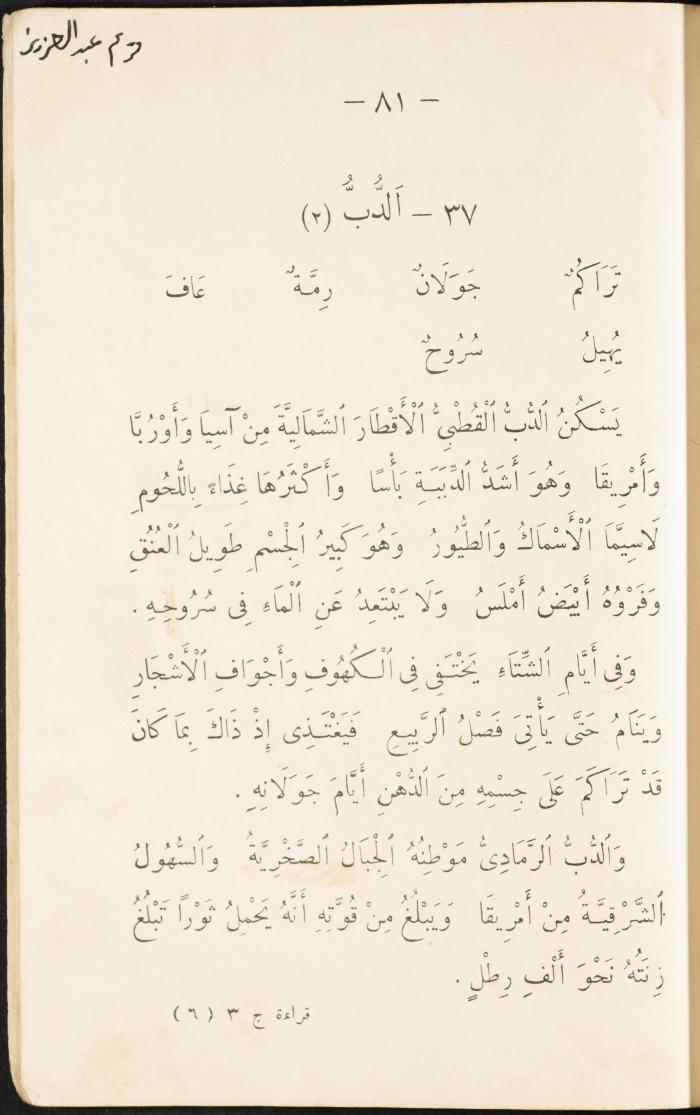 عبد العزيز
— ٨١ —
٣٧ — اَلدُّبُّ (٢)
تَرَاكُمٌ جَوَلَانٌ رِمَّةٌ عَافَ
يُهِيلُ سُرُوحٌ
يَسْكُنُ ٱلدُّبُّ ٱلْقُطْبِىُّ ٱلْأَقْطَارَ ٱلشَّمَالِيَّةَ مِنْ آسِيَا وَأَوْرُبَّا
وَأَمْرِيقَا وَهُوَ أَشَدُّ ٱلدِّبَبَةِ بَأْسًا وَأَكْثَرُهَا غِذَاءً بِاللُّحُومِ
لَاسِيَّمَا ٱلْأَسْمَاكُ وَٱلطُّيُورُ وَهُوَ كَبِيرُ ٱلْجِسْمِ طَوِيلُ ٱلْعُنُقِ
وَفَرْوُهُ أَبْيَضُ أَمْلَسُ وَلَا يَبْتَعِدُ عَنِ ٱلْمَاءِ فِى سُرُوحِهِ .
وَفِى أَيَّامِ ٱلشِّتَاءِ يَخْتَفِى فِى ٱلْكُهُوفِ وَأَجْوَافِ ٱلْأَشْجَارِ
وَيَنَامُ حَتَّى يَأْتِىَ فَصْلُ ٱلرَّبِيعِ فَيَغْتَذِى إِذْ ذَاكَ بِمَا كَانَ
قَدْ تَرَاكَمَ عَلَى جِسْمِهِ مِنَ ٱلدُّهْنِ أَيَّامَ جَوَلَانِهِ .
وَٱلدُّبُّ ٱلرَّمَادِىُّ مَوْطِنُهُ ٱلْجِبَالُ ٱلصَّخْرِيَّةُ وَٱلسُّهُولُ
ٱلشَّرْقِيَّةُ مِنْ أَمْرِيقَا وَيَبْلُغُ مِنْ قُوَّتِهِ أَنَّهُ يَحْمِلُ ثَوْرًا تَبْلُغُ
زِنَتُهُ نَحْوَ أَلْفِ رِطْلٍ .
قراءة ج ٣ (٦)